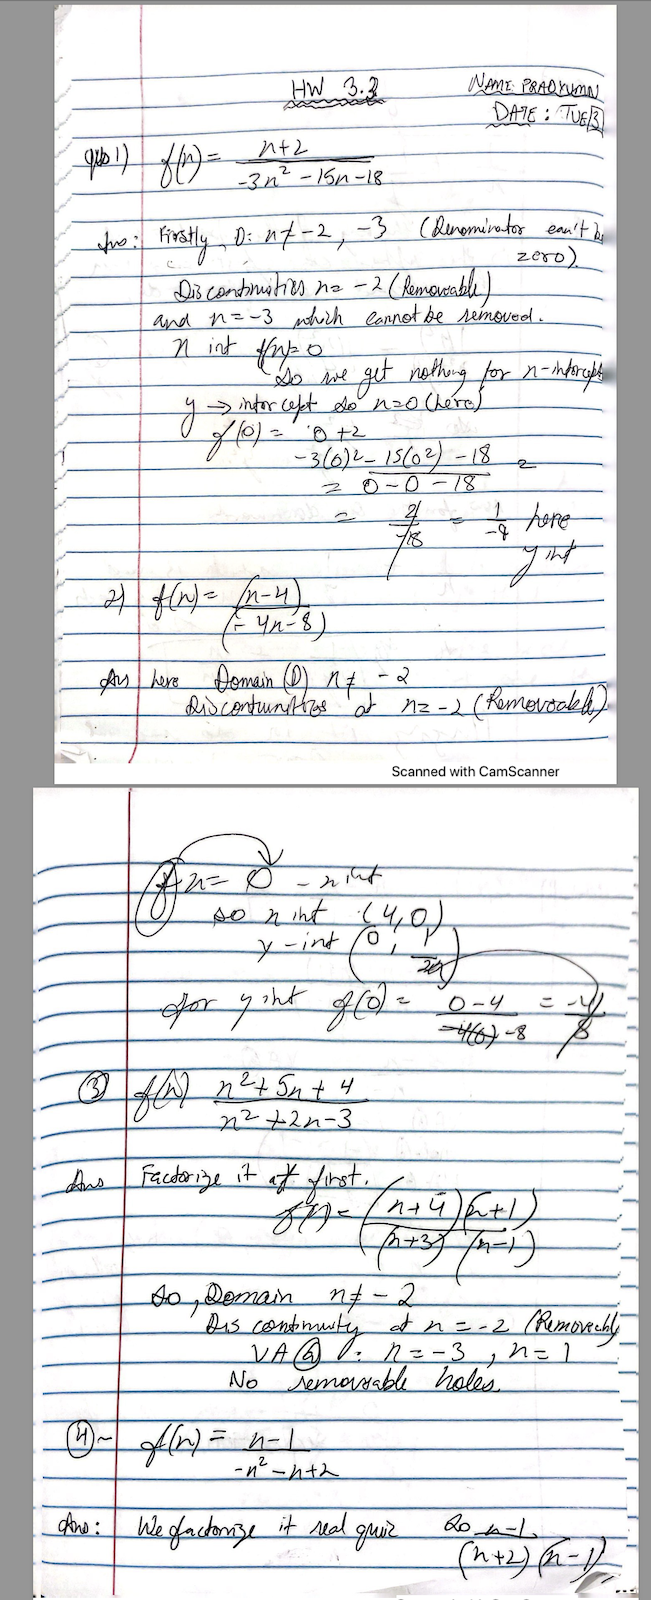 HW 3.3
NAME: PRADYUMN
DATE: TUE/3
1) f(n) = n+2 / -3n² -15n -18
Ans: Firstly, D: n ≠ -2, -3 (Denominator can't be zero).
Discontinuities n = -2 (Removeable)
and n = -3 which cannot be removed.
n int f(n) = 0
So we get nothing for n-intercept
y → intercept so n=0 (here)
f(0) = 0+2 / -3(0)² - 15(0²) - 18 =
= 0 - 0 - 18
= 2/-18 = 1/-9 here
y int
2) f(n) = (n-4) / (-4n-8)
Ans here Domain (D) n ≠ -2
Discontinuities at n = -2 (Removeable)
Scanned with CamScanner
f n = 0 - n int
so n int (4,0)
y-int (0, 1/2)
for y int f(0) = 0-4 / -4(0)-8 = -4/8
③ f(n) n²+5n+4 / n²+2n-3
Ans Factorize it at first.
f(n) = (n+4)(n+1) / (n+3)(n-1)
So, Domain n ≠ -2
Discontinuity at n = -2 (Removeable)
VA @ : n = -3, n = 1
No removable holes.
④ ~ f(n) = n-1 / -n²-n+2
Ans: We factorize it real quic So n-1 / (n+2)(n-1)